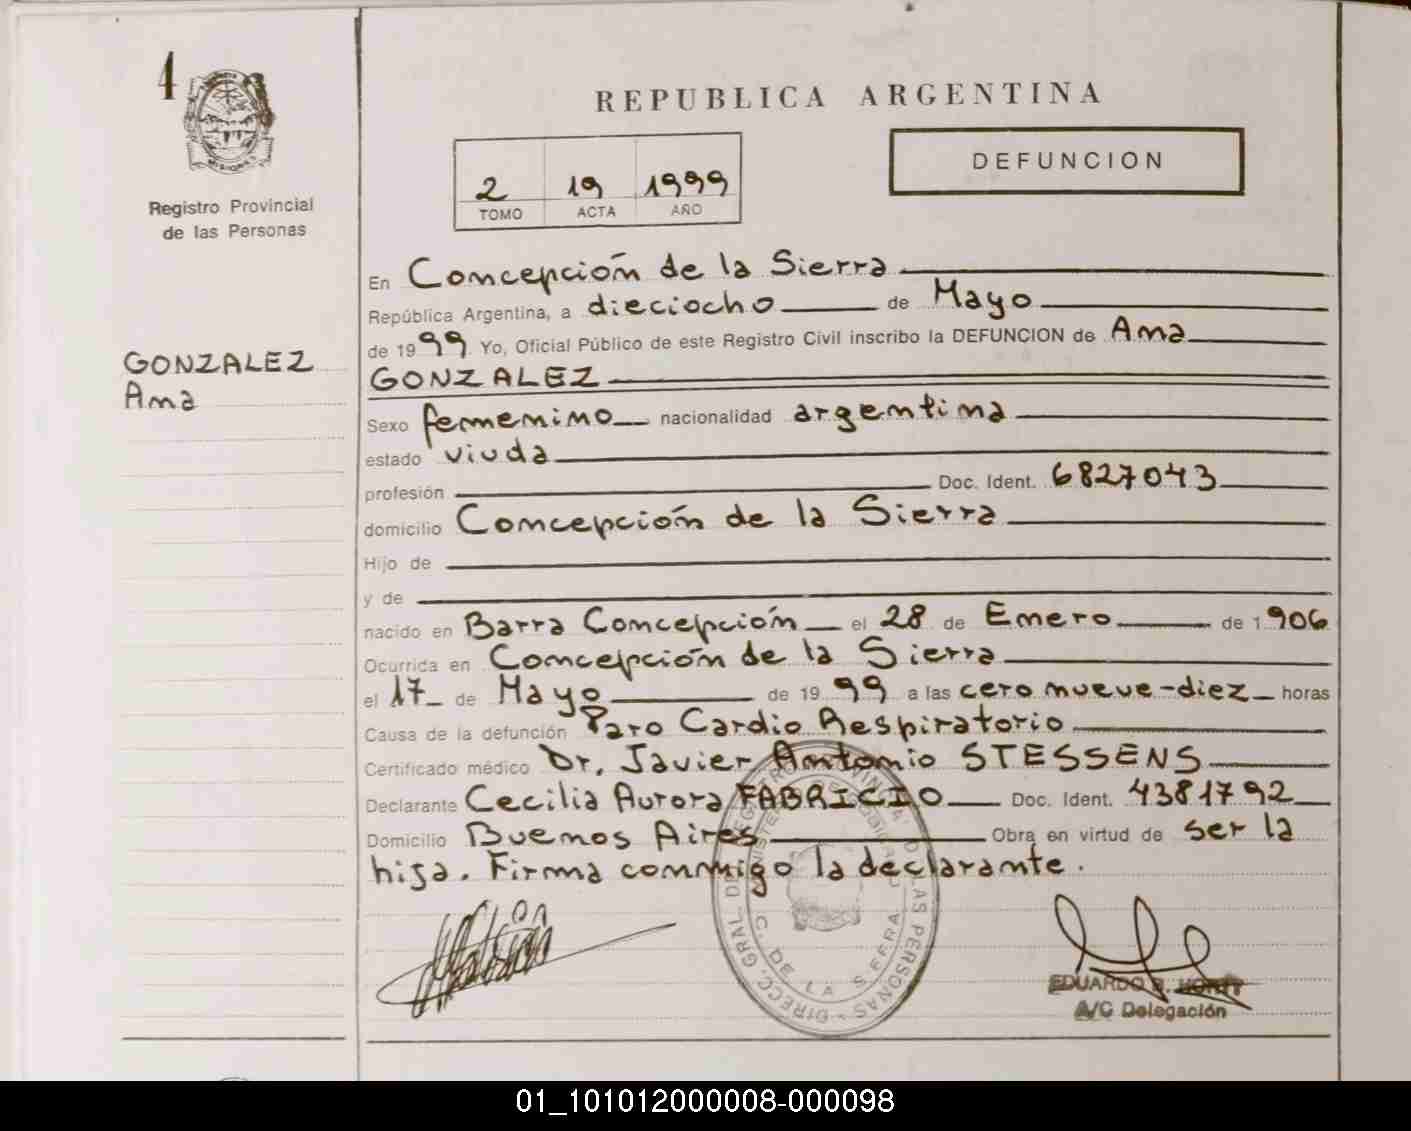 4
REPUBLICA ARGENTINA
2 19 1999
TOMO ACTA AÑO
DEFUNCION
Registro Provincial
de las Personas
GONZALEZ
Ana
En Concepción de la Sierra
República Argentina, a dieciocho de Mayo
de 1999 Yo, Oficial Público de este Registro Civil inscribo la DEFUNCION de Ana
GONZALEZ
Sexo femenino nacionalidad argentina
estado viuda
profesión Doc. Ident. 6827043
domicilio Concepción de la Sierra
Hijo de
y de
nacido en Barra Concepción el 28 de Enero de 1906
Ocurrida en Concepción de la Sierra
el 17 de Mayo de 1999 a las cero nueve-diez horas
Causa de la defunción Paro Cardio Respiratorio
Certificado médico Dr. Javier Antonio STESSENS
Declarante Cecilia Aurora FABRICIO Doc. Ident. 4381792
Domicilio Buenos Aires Obra en virtud de ser la
hija. Firma conmigo la declarante.
EDUARDO
A/C Delegación
01_101012000008-000098